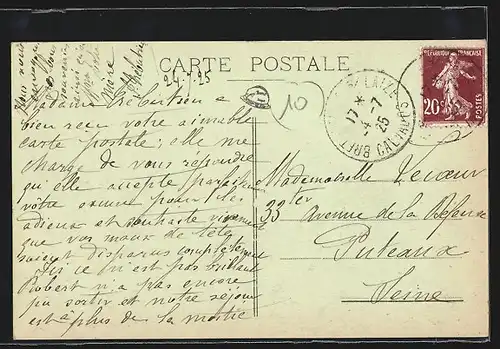 CARTE POSTALE
24-7-25
10
bien reçu votre aimable
carte postale; elle me
charge de vous répondre
qu'elle accepte
votre pour les
adieux et souhaite vivement
que vos maux de tête
soient disparus complètement
Ici ce n'est pas brillant
Robert n'a pas encore
pu sortir et notre séjour
est à plus de la moitié
RÉPUBLIQUE FRANÇAISE
20c
POSTES
LAIZE
17 *
4-7
25
CALVADOS
Mademoiselle Lecoeur
33 ter Avenue de la Défense
Puteaux
Seine